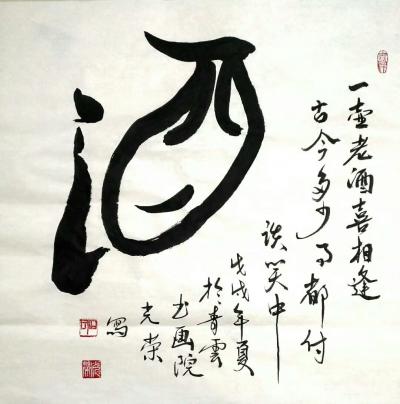 酒
一壶老酒喜相逢
古今多少事都付
谈笑中
戊戌年夏
於青雲
书画院
光荣
写